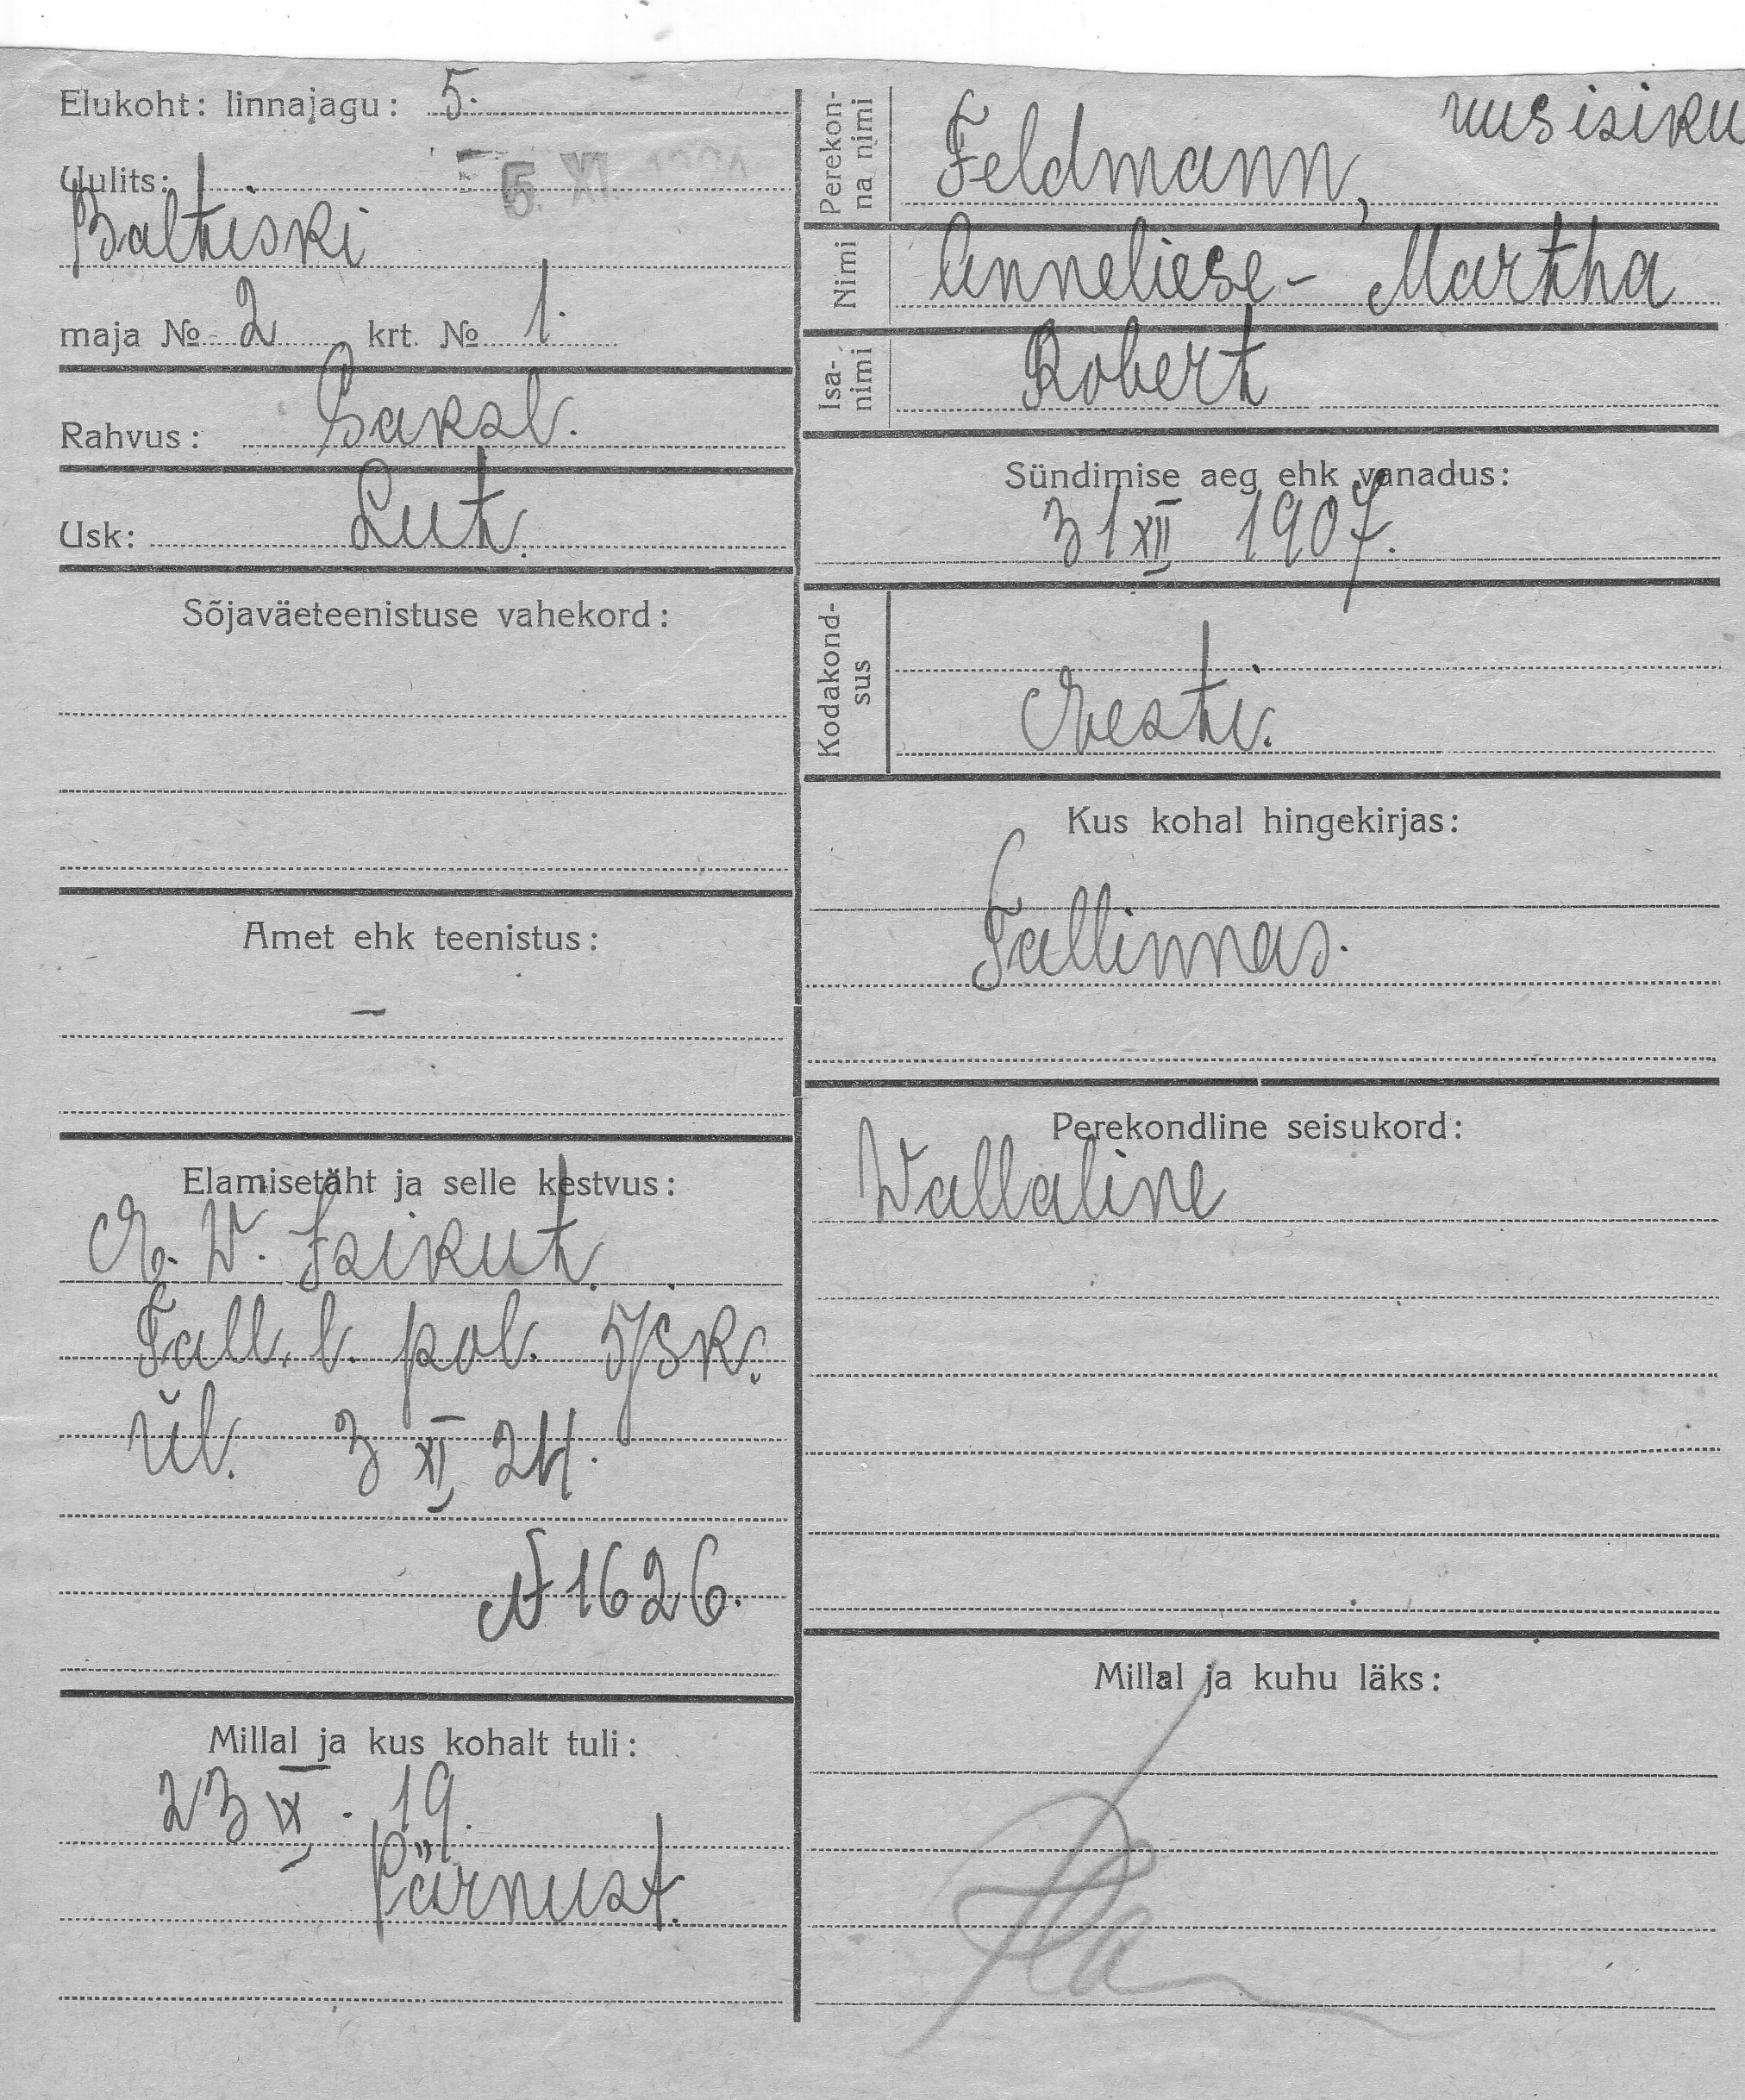 Elukoht: linnajagu: 5.
Uulits:
5. XI. 1924
Baltiski
maja № 2 krt. № 1.
Rahvus: Saksl.
Usk: Lut.
Sõjaväeteenistuse vahekord:
Amet ehk teenistus:
–
Elamisetäht ja selle kestvus:
E. W. Isikut.
Tall. l. pol. 5/jsk.
ül. 3 XI 24.
N 1626.
Millal ja kus kohalt tuli:
23 IX . 19.
Pärnust.
uus isiku
Perekon-
na nimi
Feldmann,
Nimi
Anneliese - Martha
Isa-
nimi
Robert
Sündimise aeg ehk vanadus:
31 XII 1907.
Kodakond-
sus
Eesti.
Kus kohal hingekirjas:
Tallinnas.
Perekondline seisukord:
Wallaline
Millal ja kuhu läks: